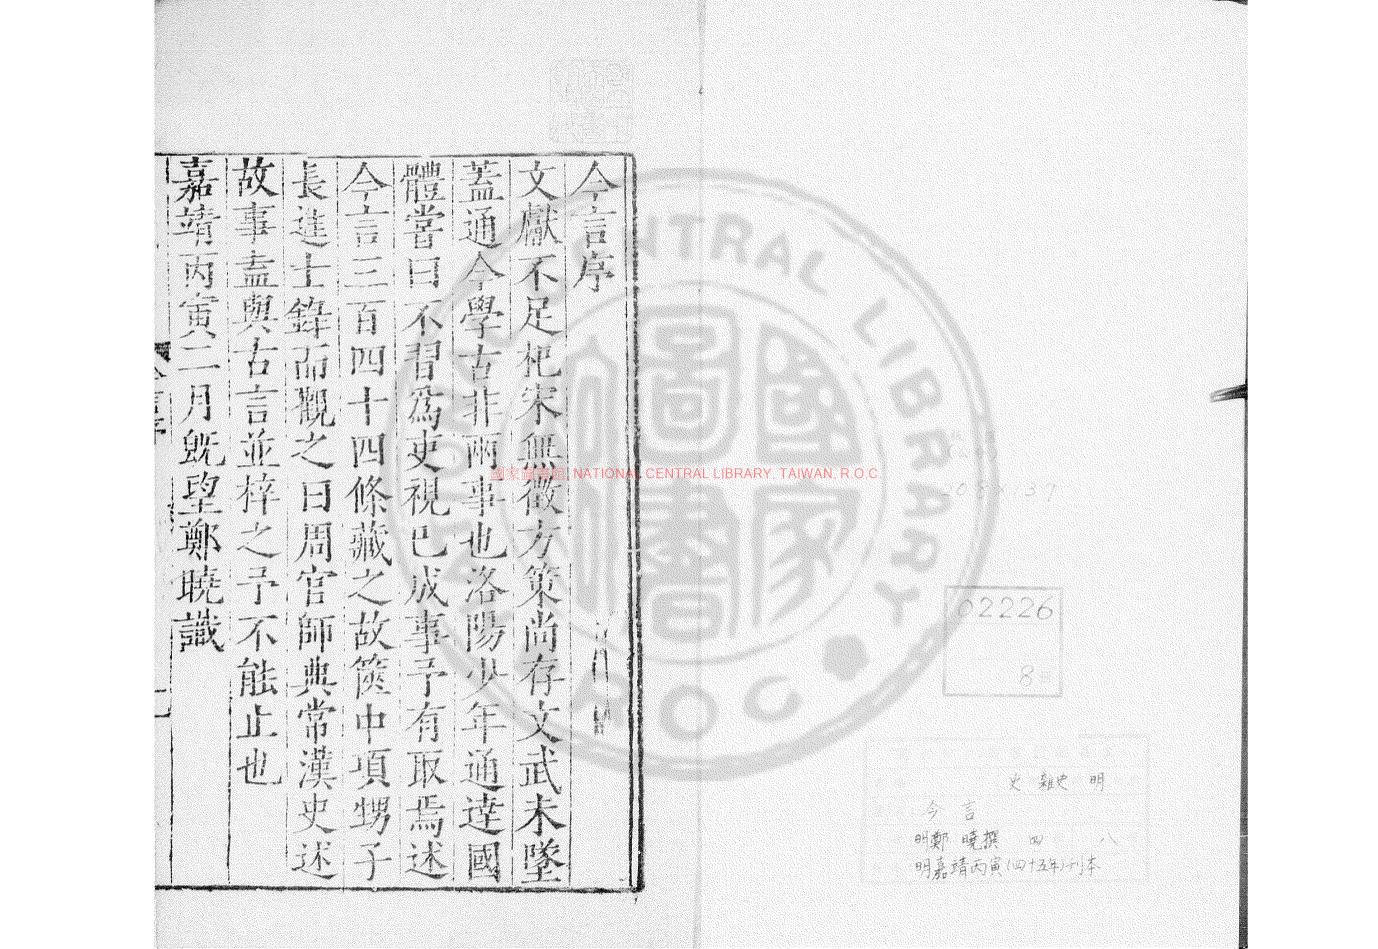 今言序
文獻不足杞宋無徵方策尚存文武未墜
蓋通今學古非兩事也洛陽少年通達國
體嘗曰不習爲吏視已成事予有取焉述
今言三百四十四條藏之故篋中項甥子
長進士錄而觀之曰周官師典常漢史述
故事盍與古言並梓之予不能止也
嘉靖丙寅二月旣望鄭曉識
國家圖書館, NATIONAL CENTRAL LIBRARY, TAIWAN, R.O.C.
CENTRAL LIBRARY
R.O.C
國家圖書
02226
8
史 雜史 明
今言
明鄭 曉撰 四 八
明嘉靖丙寅(四十五年)刊本